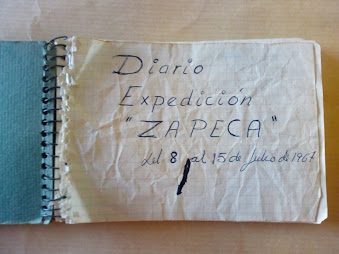 Diario
Expedición
"ZAPECA"
del 8 al 15 de Julio de 1967